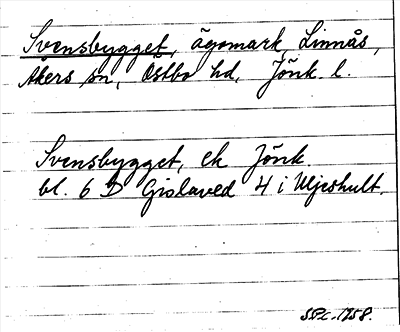 Svensbygget, ägomark, Linnås,
Åkers sn, Östbo hd, Jönk. l.
Svensbygget, ek Jönk.
bl. 6 D Gislaved 4 i Uljeshult.